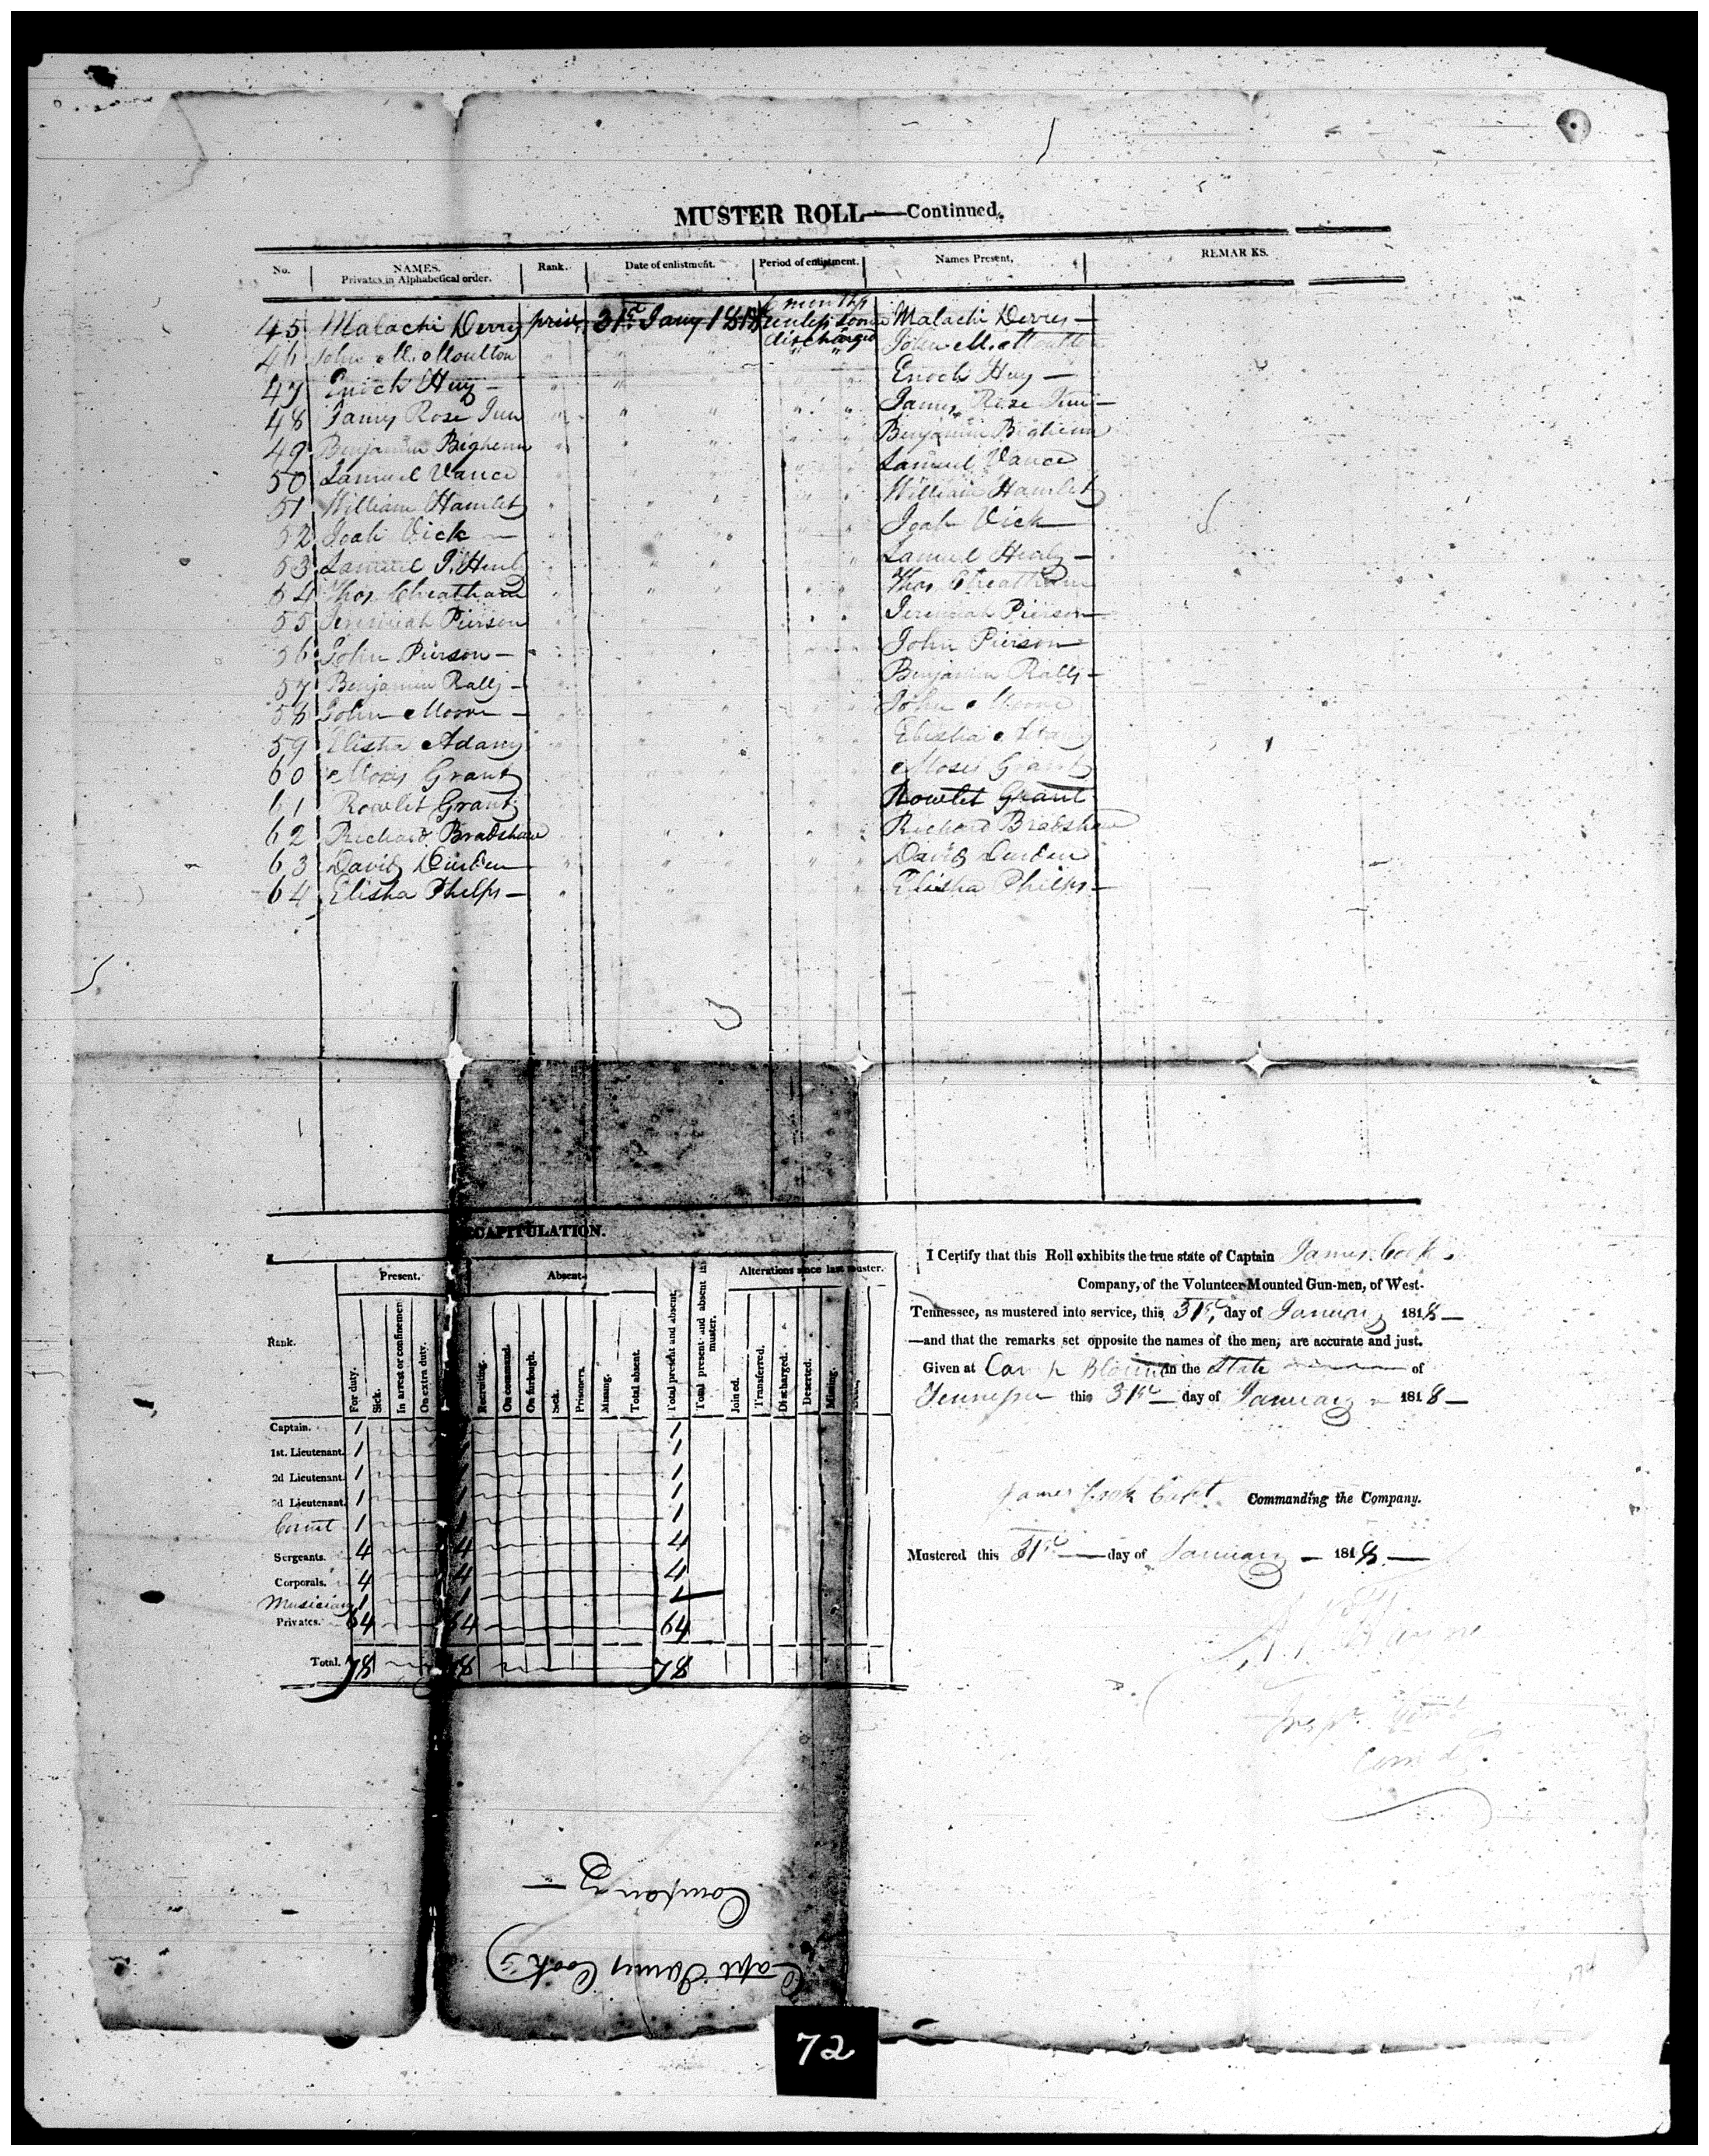 MUSTER ROLL—Continued.
No. NAMES. Privates in Alphabetical order. Rank. Date of enlistment. Period of enlistment. Names Present, REMARKS.
45 Malachi Derry priv. 31st Jany 1818 6 months unless sooner discharged Malachi Derry —
46 John M. Moulton " " " " " John M. Moulton
47 Enoch Huy — " " " " Enoch Huy —
48 James Rose Jun " " " " " James Rose Jun —
49 Benjamin Bighenn " " " " " Benjamin Bighenn
50 Samuel Vance " " " " " Samuel Vance
51 William Hamlet " " " " " William Hamlet
52 Joab Vick — " " " " " Joab Vick —
53 Samuel J. Henly " " " " Samuel Henly —
54 Thos Cheatham " " " Thos Cheatham
55 Jeremiah Pierson " " " " " Jeremiah Pierson —
56 John Pierson — " " " " " John Pierson —
57 Benjamin Ralls — " " " " " Benjamin Ralls —
58 John Moore — " " " " " John Moore
59 Elisha Adams " " " " " Elisha Adams
60 Moses Grant " " " " Moses Grant
61 Rowlet Grant " " " " Rowlet Grant
62 Richard Bradshaw " " " " Richard Bradshaw
63 David Durden " " " " David Durden
64 Elisha Phelps — " " " Elisha Phelps —
CAPITULATION.
Rank. Present. Absent. Alterations since last muster.
For duty. Sick. In arrest or confinement. On extra duty. Recruiting. On command. On furlough. Sick. Prisoners. Missing. Total absent. Total present and absent. Total present and absent last muster. Joined. Transferred. Discharged. Deserted. Missing.
Captain. 1 1
1st. Lieutenant. 1 1 1
2d Lieutenant. 1 1 1
3d Lieutenant. 1 1 1
Cornet 1 1 1
Sergeants. 4 4 4
Corporals. 4 4 4
Musician 1 1 1
Privates. 64 64 64
Total. 78 78 78
I Certify that this Roll exhibits the true state of Captain James Cook's
Company, of the Volunteer Mounted Gun-men, of West-
Tennessee, as mustered into service, this 31st, day of January 1818 —
—and that the remarks set opposite the names of the men, are accurate and just.
Given at Camp Blount in the State of
Tennessee this 31st — day of January 1818 —
James Cook Capt. Commanding the Company.
Mustered this 31st — day of January — 1818. —
Capt James Cook's
Company —
72